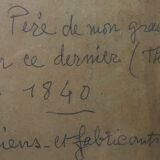 Père de mon gra
ce dernier (Th
1840
iens et fabricants